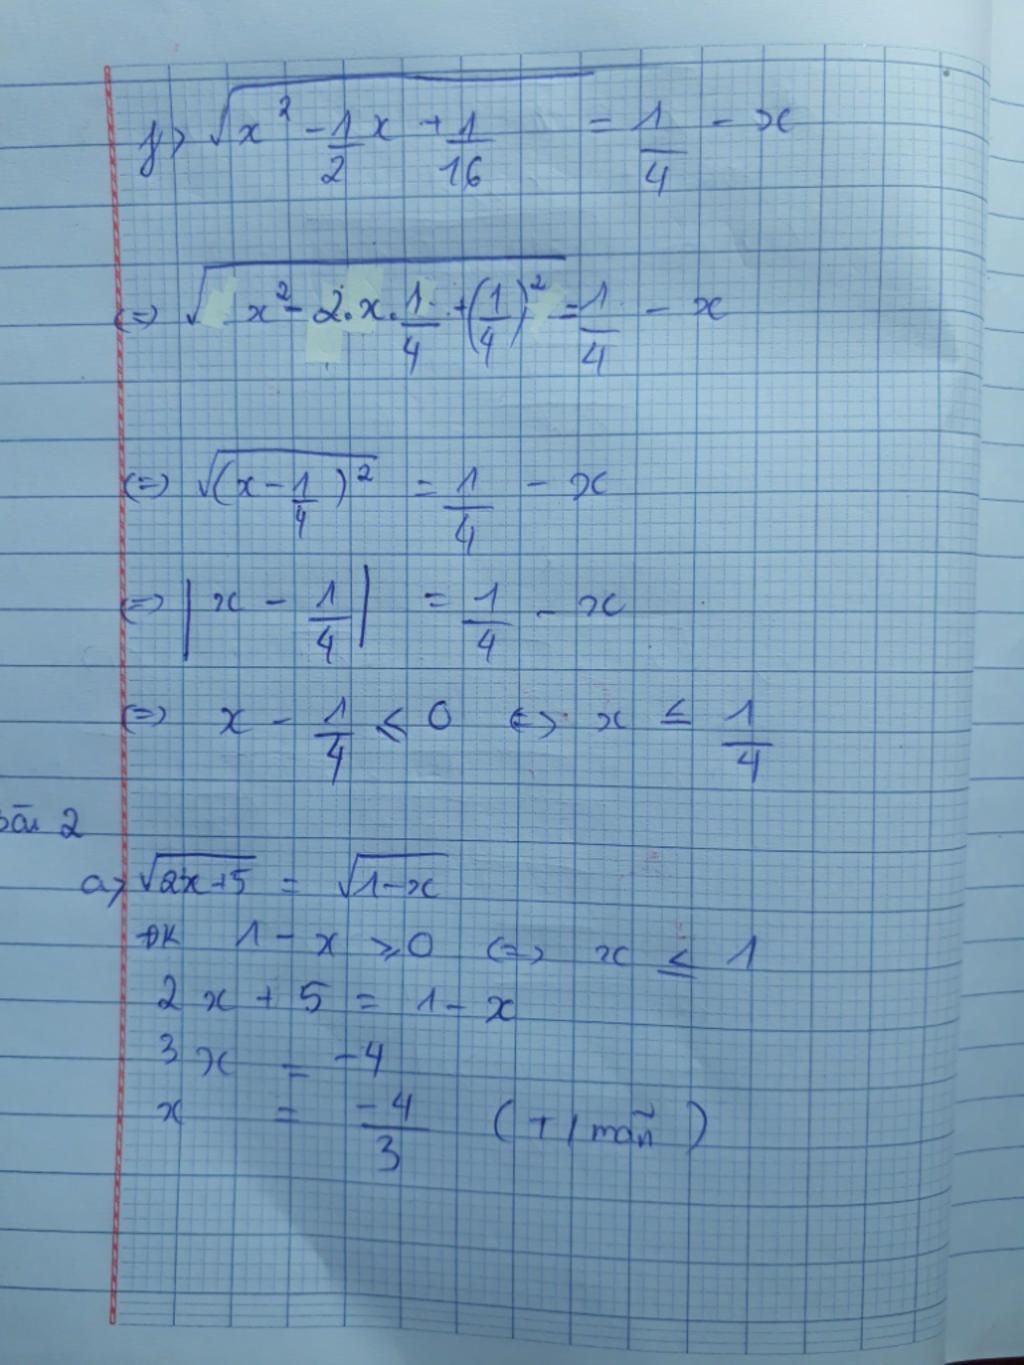 f> √(x² - 1/2 x + 1/16) = 1/4 - x
(=) √(x² - 2.x.1/4 + (1/4)²) = 1/4 - x
(=) √((x - 1/4)²) = 1/4 - x
(=) |x - 1/4| = 1/4 - x
(=) x - 1/4 ≤ 0 (=) x ≤ 1/4
Bài 2
a> √(2x+5) = √(1-x)
ĐK 1 - x ≥ 0 (=) x ≤ 1
2x + 5 = 1 - x
3x = -4
x = -4/3 (T/mãn)